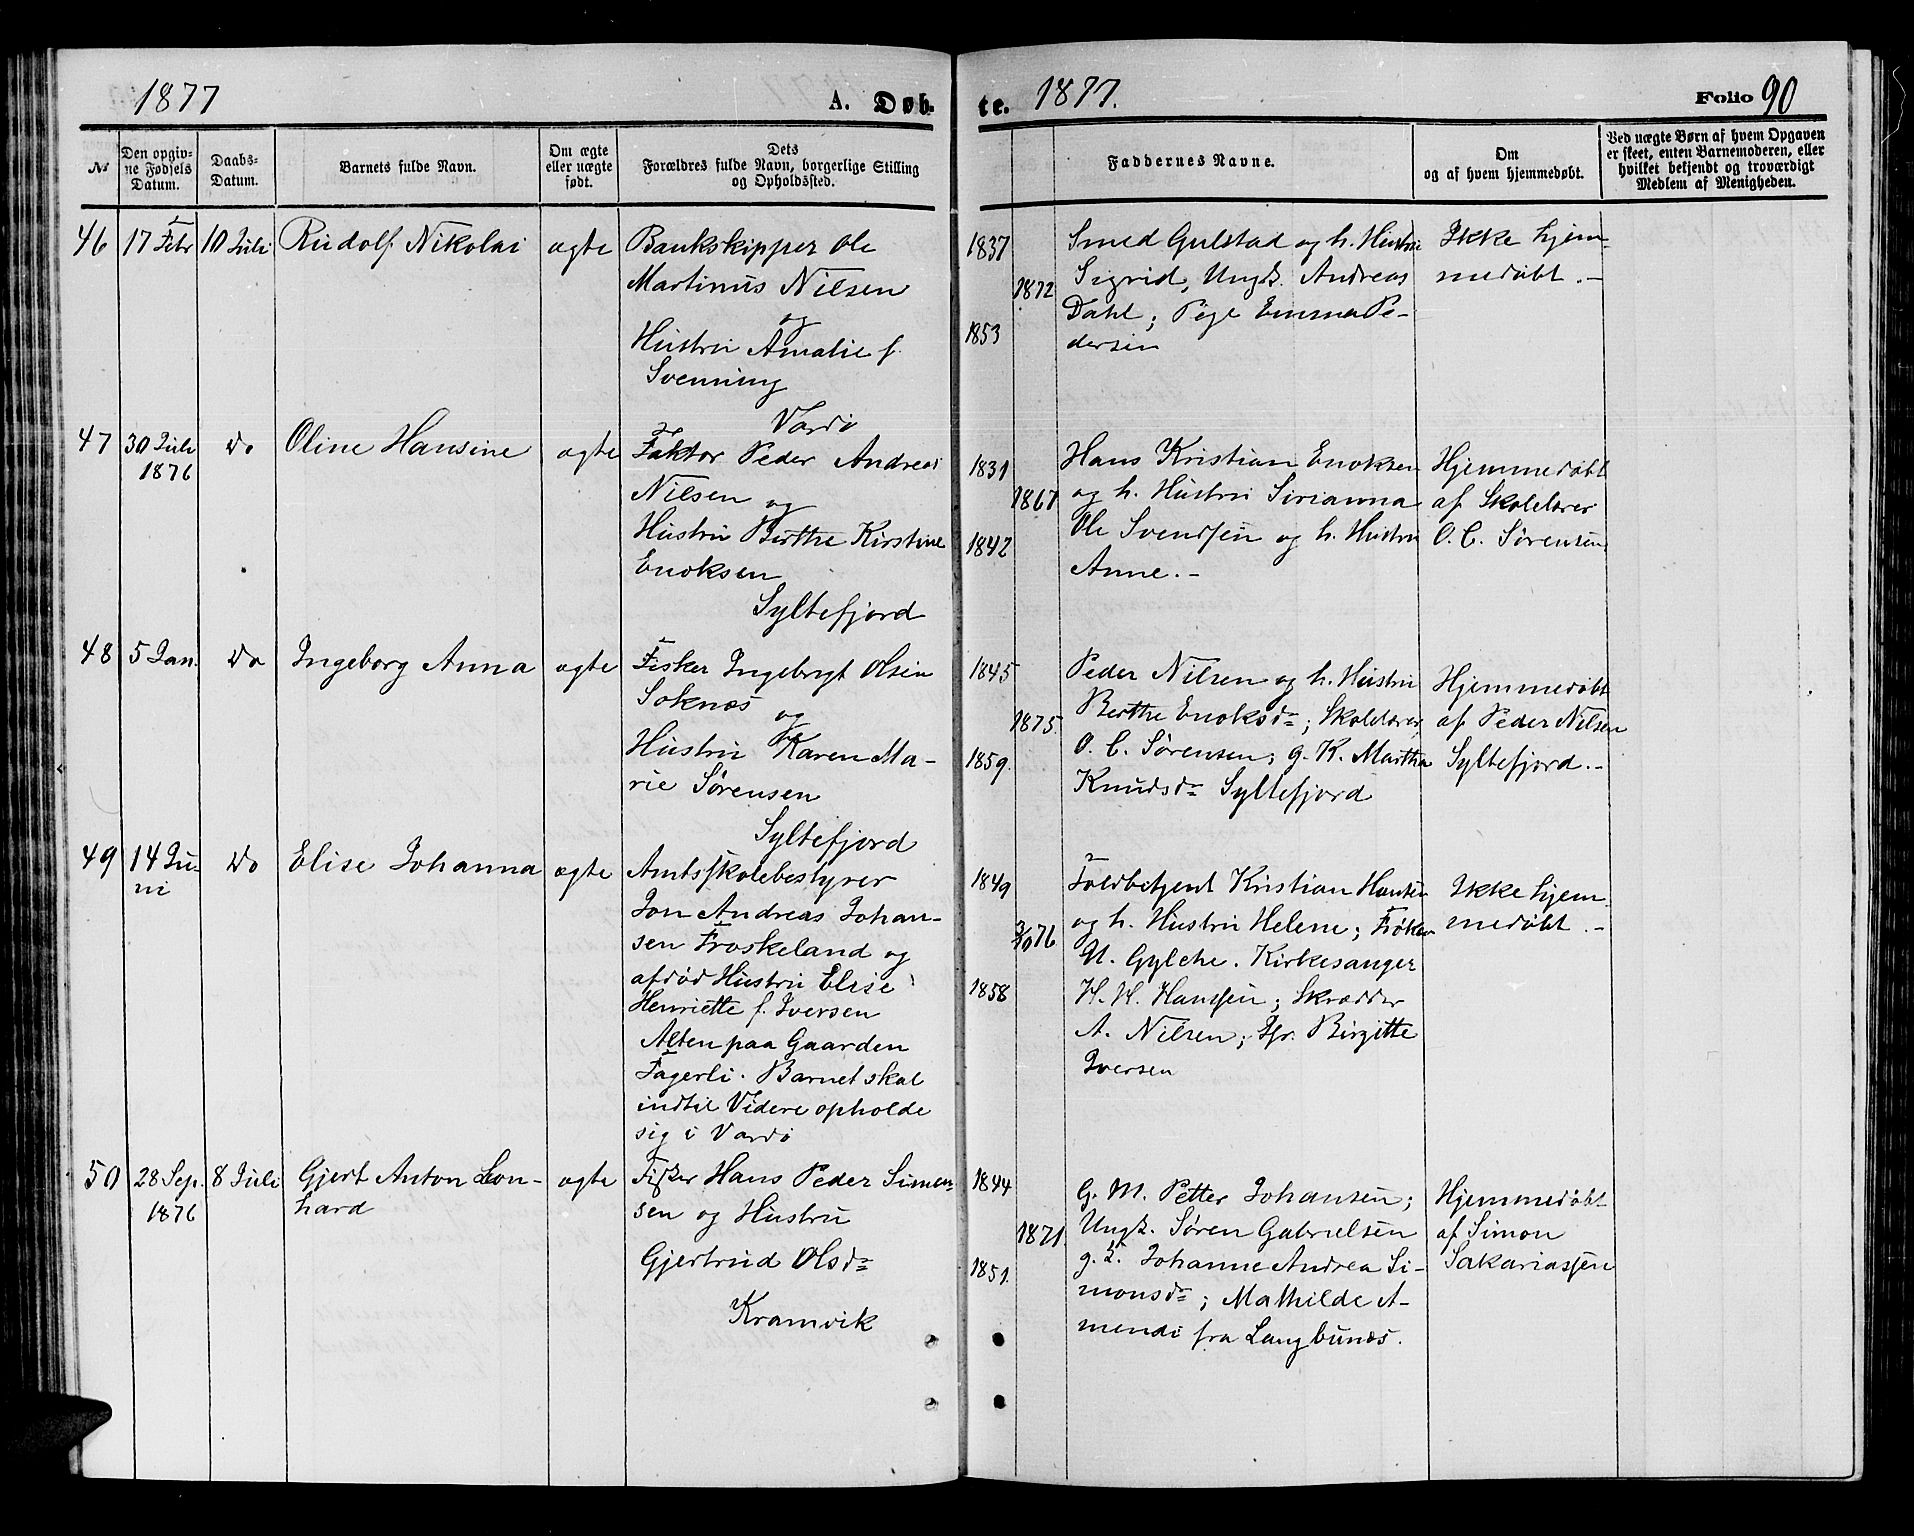 1877
A. Døb-
te.
1877.
Folio 90
№
Den opgiv-
ne Fødsels
Datum.
Daabs-
Datum.
Barnets fulde Navn.
Om ægte
eller uægte
født.
Dets
Forældres fulde Navn, borgerlige Stilling
og Opholdssted.
Faddernes Navne.
Om
og af hvem hjemmedøbt.
Ved uægte Børn af hvem Opgaven
er skeet, enten Barnemoderen, eller
hvilket bekjendt og troværdigt
Medlem af Menigheden.
46
17 Febr
10 Juli
Rudolf Nikolai
ægte
Bankskipper Ole
Martinus Nilsen
og
Hustru Amalie f.
Svenning
Vardø
1837
1872
1853
Smed Gulstad og h. Hustru
Sigrid, Ungk. Andreas
Dahl; Pige Emma Pe-
dersen
Ikke hjem-
medøbt. –
47
30 Juli
1876
Do
Oline Hansine
ægte
Faktor Peder Andreas
Nilsen og
Hustru Berthe Kirstine
Enoksen
Syltefjord
1831
1867
1842
Hans Kristian Enoksen
og h. Hustru Sirianna
Ole Svendsen og h. Hustru
Anne. –
Hjemmedøbt
af Skolelærer
O. C. Sørensen
48
5 Jan.
Do
Ingeborg Anna
ægte
Fisker Ingebrigt Olsen
Soknæs og
Hustru Karen Ma-
rie Sørensen
Syltefjord
1845
1875.
1859.
Peder Nilsen og h. Hustru
Berthe Enoksdr; Skolelærer
O. C. Sørensen; g. K. Martha
Knudsdr Syltefjord
Hjemmedøbt
af Peder Nilsen
Syltefjord. –
49
14 Ju-
ni
Do
Elise Johanna
ægte
Amtsskolebestyrer
Jon Andreas Johan-
sen Froskeland og
afdød Hustru Elise
Henriette f. Iversen
Alten paa Gaarden
Fagerli. Barnet skal
indtil Videre opholde
sig i Vardø
1849
3/10 76
1858
Toldbetjent Kristian Hansen
og h. Hustru Helene; Frøken
U. Gylche. Kirkesanger
H. H. Hanssen; Skrædder
A. Nilsen; Jfr. Birgitte
Iversen
Ikke hjem-
medøbt. –
50
28 Sep.
1876
8 Juli
Gjert Anton Leon-
hard
ægte
Fisker Hans Peder Simon-
sen og Hustru
Gjertrud Olsdr
Kramvik
1844
1871.
1851.
G. M. Petter Johansen;
Ungk. Søren Gabrielsen
g. K. Johanne Andrea Si-
monsdr; Mathilde A-
mendi fra Langbunes.
Hjemmedøbt
af Simon
Sakariassen